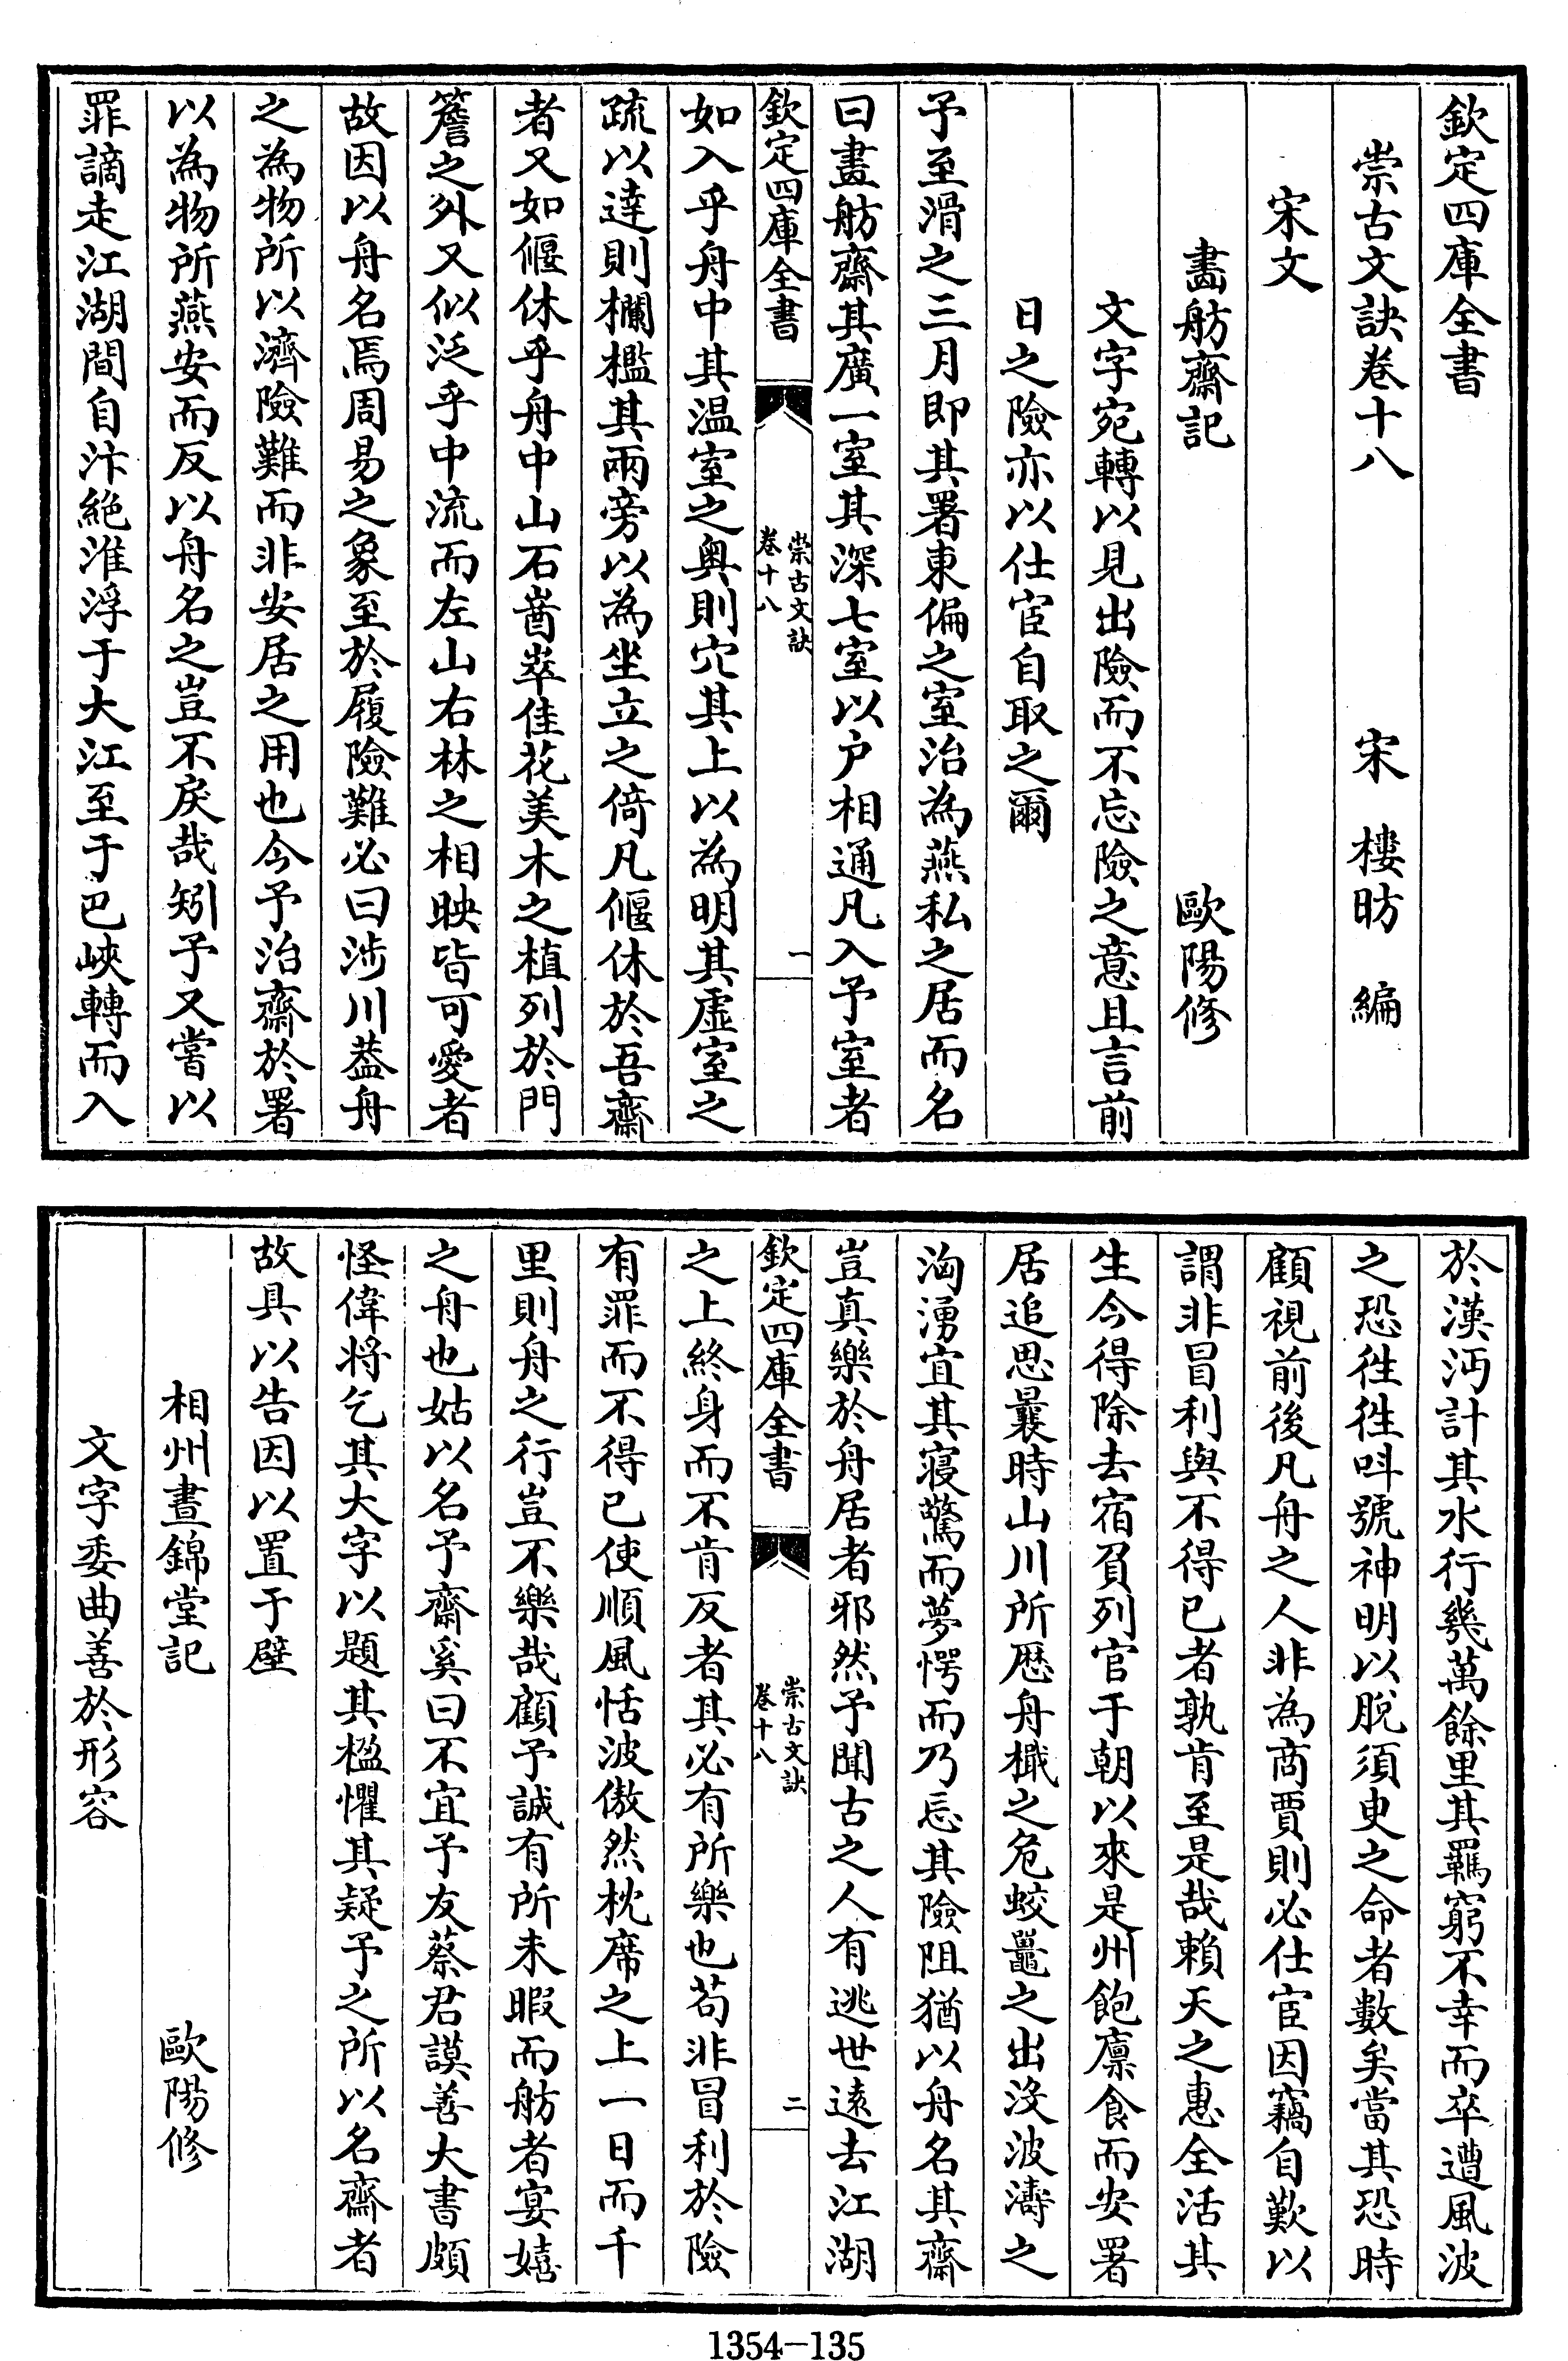 欽定四庫全書
崇古文訣卷十八
宋 樓昉 編
宋文
畵舫齋記 歐陽修
文字宛轉以見出險而不忘險之意且言前
日之險亦以仕宦自取之爾
予至滑之三月即其署東偏之室治為燕私之居而名
曰畫舫齋其廣一室其深七室以户相通凡入予室者
欽定四庫全書
崇古文訣
卷十八
一
如入乎舟中其温室之奥則穴其上以為明其虛室之
疏以達則欄檻其兩旁以為坐立之倚凡偃休於吾齋
者又如偃休乎舟中山石崷崒佳花美木之植列於門
簷之外又似泛乎中流而左山右林之相映皆可愛者
故因以舟名焉周易之象至於履險難必曰涉川葢舟
之為物所以濟險難而非安居之用也今予治齋於署
以為物所燕安而反以舟名之豈不戾哉矧予又嘗以
罪謫走江湖間自汴絶淮浮于大江至于巴峽轉而入
於漢沔計其水行幾萬餘里其羈窮不幸而卒遭風波
之恐徃徃呌號神明以脫須臾之命者數矣當其恐時
顧視前後凡舟之人非為商賈則必仕宦因竊自歎以
謂非冒利與不得已者孰肯至是哉賴天之惠全活其
生今得除去宿負列官于朝以來是州飽廪食而安署
居追思曩時山川所歴舟檝之危蛟鼉之出沒波濤之
洶湧宜其寢驚而夢愕而乃忘其險阻猶以舟名其齋
豈真樂於舟居者邪然予聞古之人有逃世逺去江湖
欽定四庫全書
崇古文訣
卷十八
二
之上終身而不肯反者其必有所樂也苟非冒利於險
有罪而不得已使順風恬波傲然枕席之上一日而千
里則舟之行豈不樂哉顧予誠有所未暇而舫者宴嬉
之舟也姑以名予齋奚曰不宜予友蔡君謨善大書頗
怪偉将乞其大字以題其楹懼其疑予之所以名齋者
故具以告因以置于壁
相州晝錦堂記 歐陽修
文字委曲善於形容
1354-135